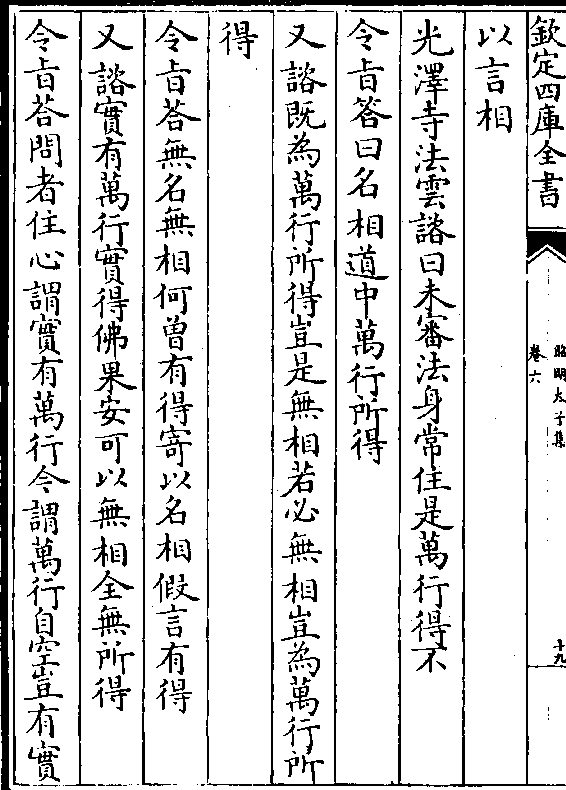 欽定四庫全書
昭明太子集
卷六
十九
以言相
光澤寺法雲諮曰未審法身常住是萬行得不
令旨答曰名相道中萬行所得
又諮既為萬行所得豈是無相若必無相豈為萬行所
得
令旨荅無名無相何曾有得寄以名相假言有得
又諮實有萬行實得佛果安可以無相全無所得
令旨荅問者住心謂實有萬行今謂萬行自空豈有實